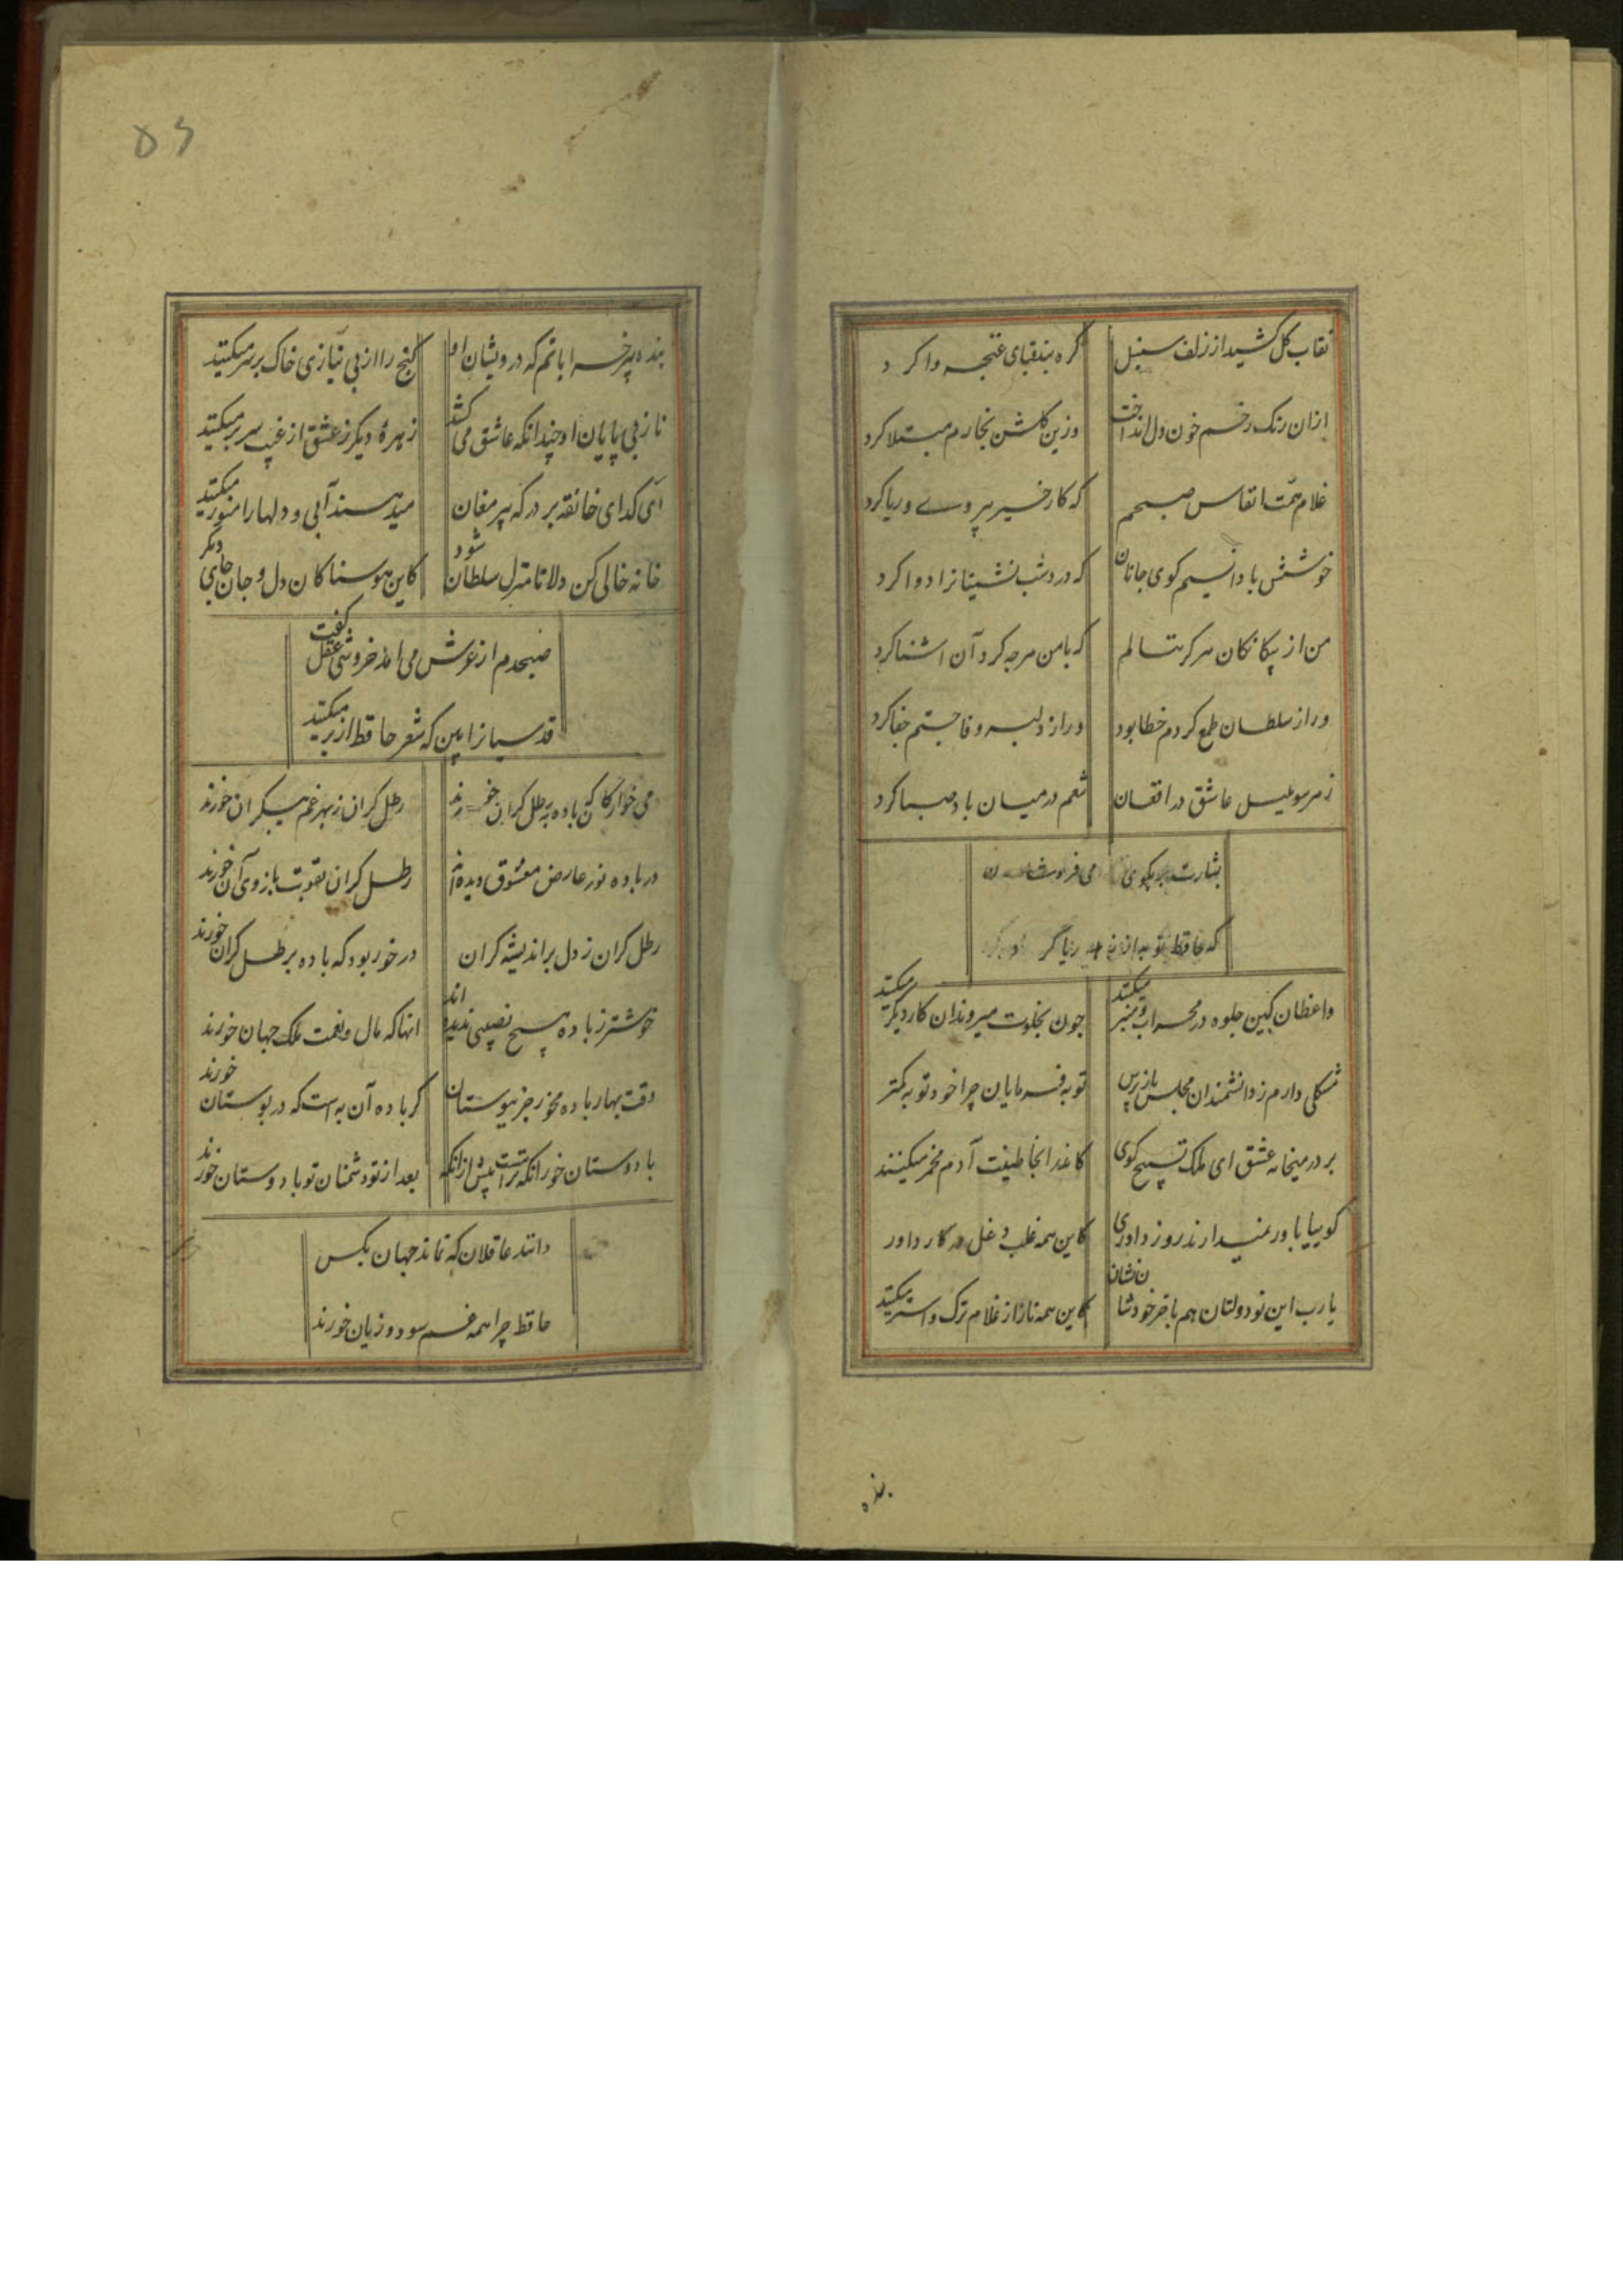 نقاب کل کشید از زلف سنبل
کره بند قبای غنچه وا کرد
ازان رنک رخم خون دل انداخت
وزین کلشن بخارم مبتلا کرد
غلام همت انفاس صبحم
که کار خیر بی روی و ریا کرد
خوشش بادا نسیم کوی جانان
که درد شب نشینانرا دوا کرد
من از بیکانکان هرکز ننالم
که با من هرچه کرد آن اشنا کرد
ور از سلطان طمع کردم خطا بود
ور از دلبر وفا جستم جفا کرد
زهر سو بلبل عاشق در افغان
تنعم در میان باد صبا کرد
بشارت بر بکوی می فروشان
که حافظ توبه از زهد ریا کرد
واعظان کین جلوه در محراب و منبر میکنند
چون بخلوت میروند ان کار دیکر میکنند
مشکلی دارم ز دانشمندان مجلس باز پرس
توبه فرمایان چرا خود توبه کمتر
بر در میخانه عشق ای ملک تسبیح کوی
کاندر انجا طینت آدم مخمر میکنند
کوییا باور نمیدارند روز داوری
کاین همه قلب و دغل در کار داور
یارب این نو دولتان هم با خر خودشان نشان
کاین همه ناز از غلام ترک و استر میکنند
بنده
۵۶
بنده پیر خراباتم که درویشان او
کنج را از بی نیازی خاک بر سر میکنند
ناز بی پایان او چندانکه عاشق می کشد
زمره دیکر ز عشق از غیب سر بر میکنند
ای کدای خانقه بر درکه پیر مغان
میدهند آبی و دلها را منور میکنند
خانه خالی کن دلا تا منزل سلطان شود
کاین هوسناکان دل و جان جای دیکر
صبحدم از عرش می امد خروشی عقل کفت
قدسیانرا بین که شعر حافظ از بر میکنند
می خوارکان که باده برطل کران خورند
رطل کران ز بهر غم بیکران خورند
در باده نور عارض معشوق دیده اند
رطل کران بقوت بازوی آن خورند
رطل کران ز دل بر اندیشه کران
در خور بود که باده بر طل کران خورند
خوشتر ز باده هیچ نصیبی ندیده اند
انها که مال و نعمت ملک جهان خورند
وقت بهار باده مخور جز ببوستان
کر باده آن به است که در بوستان خورند
با دوستان خور انکه تراست پیش ازانکه
بعد از تو دشمنان تو با دوستان خورند
دانند عاقلان که نماند جهان بکس
حافظ چرا همه غم سود و زیان خورند